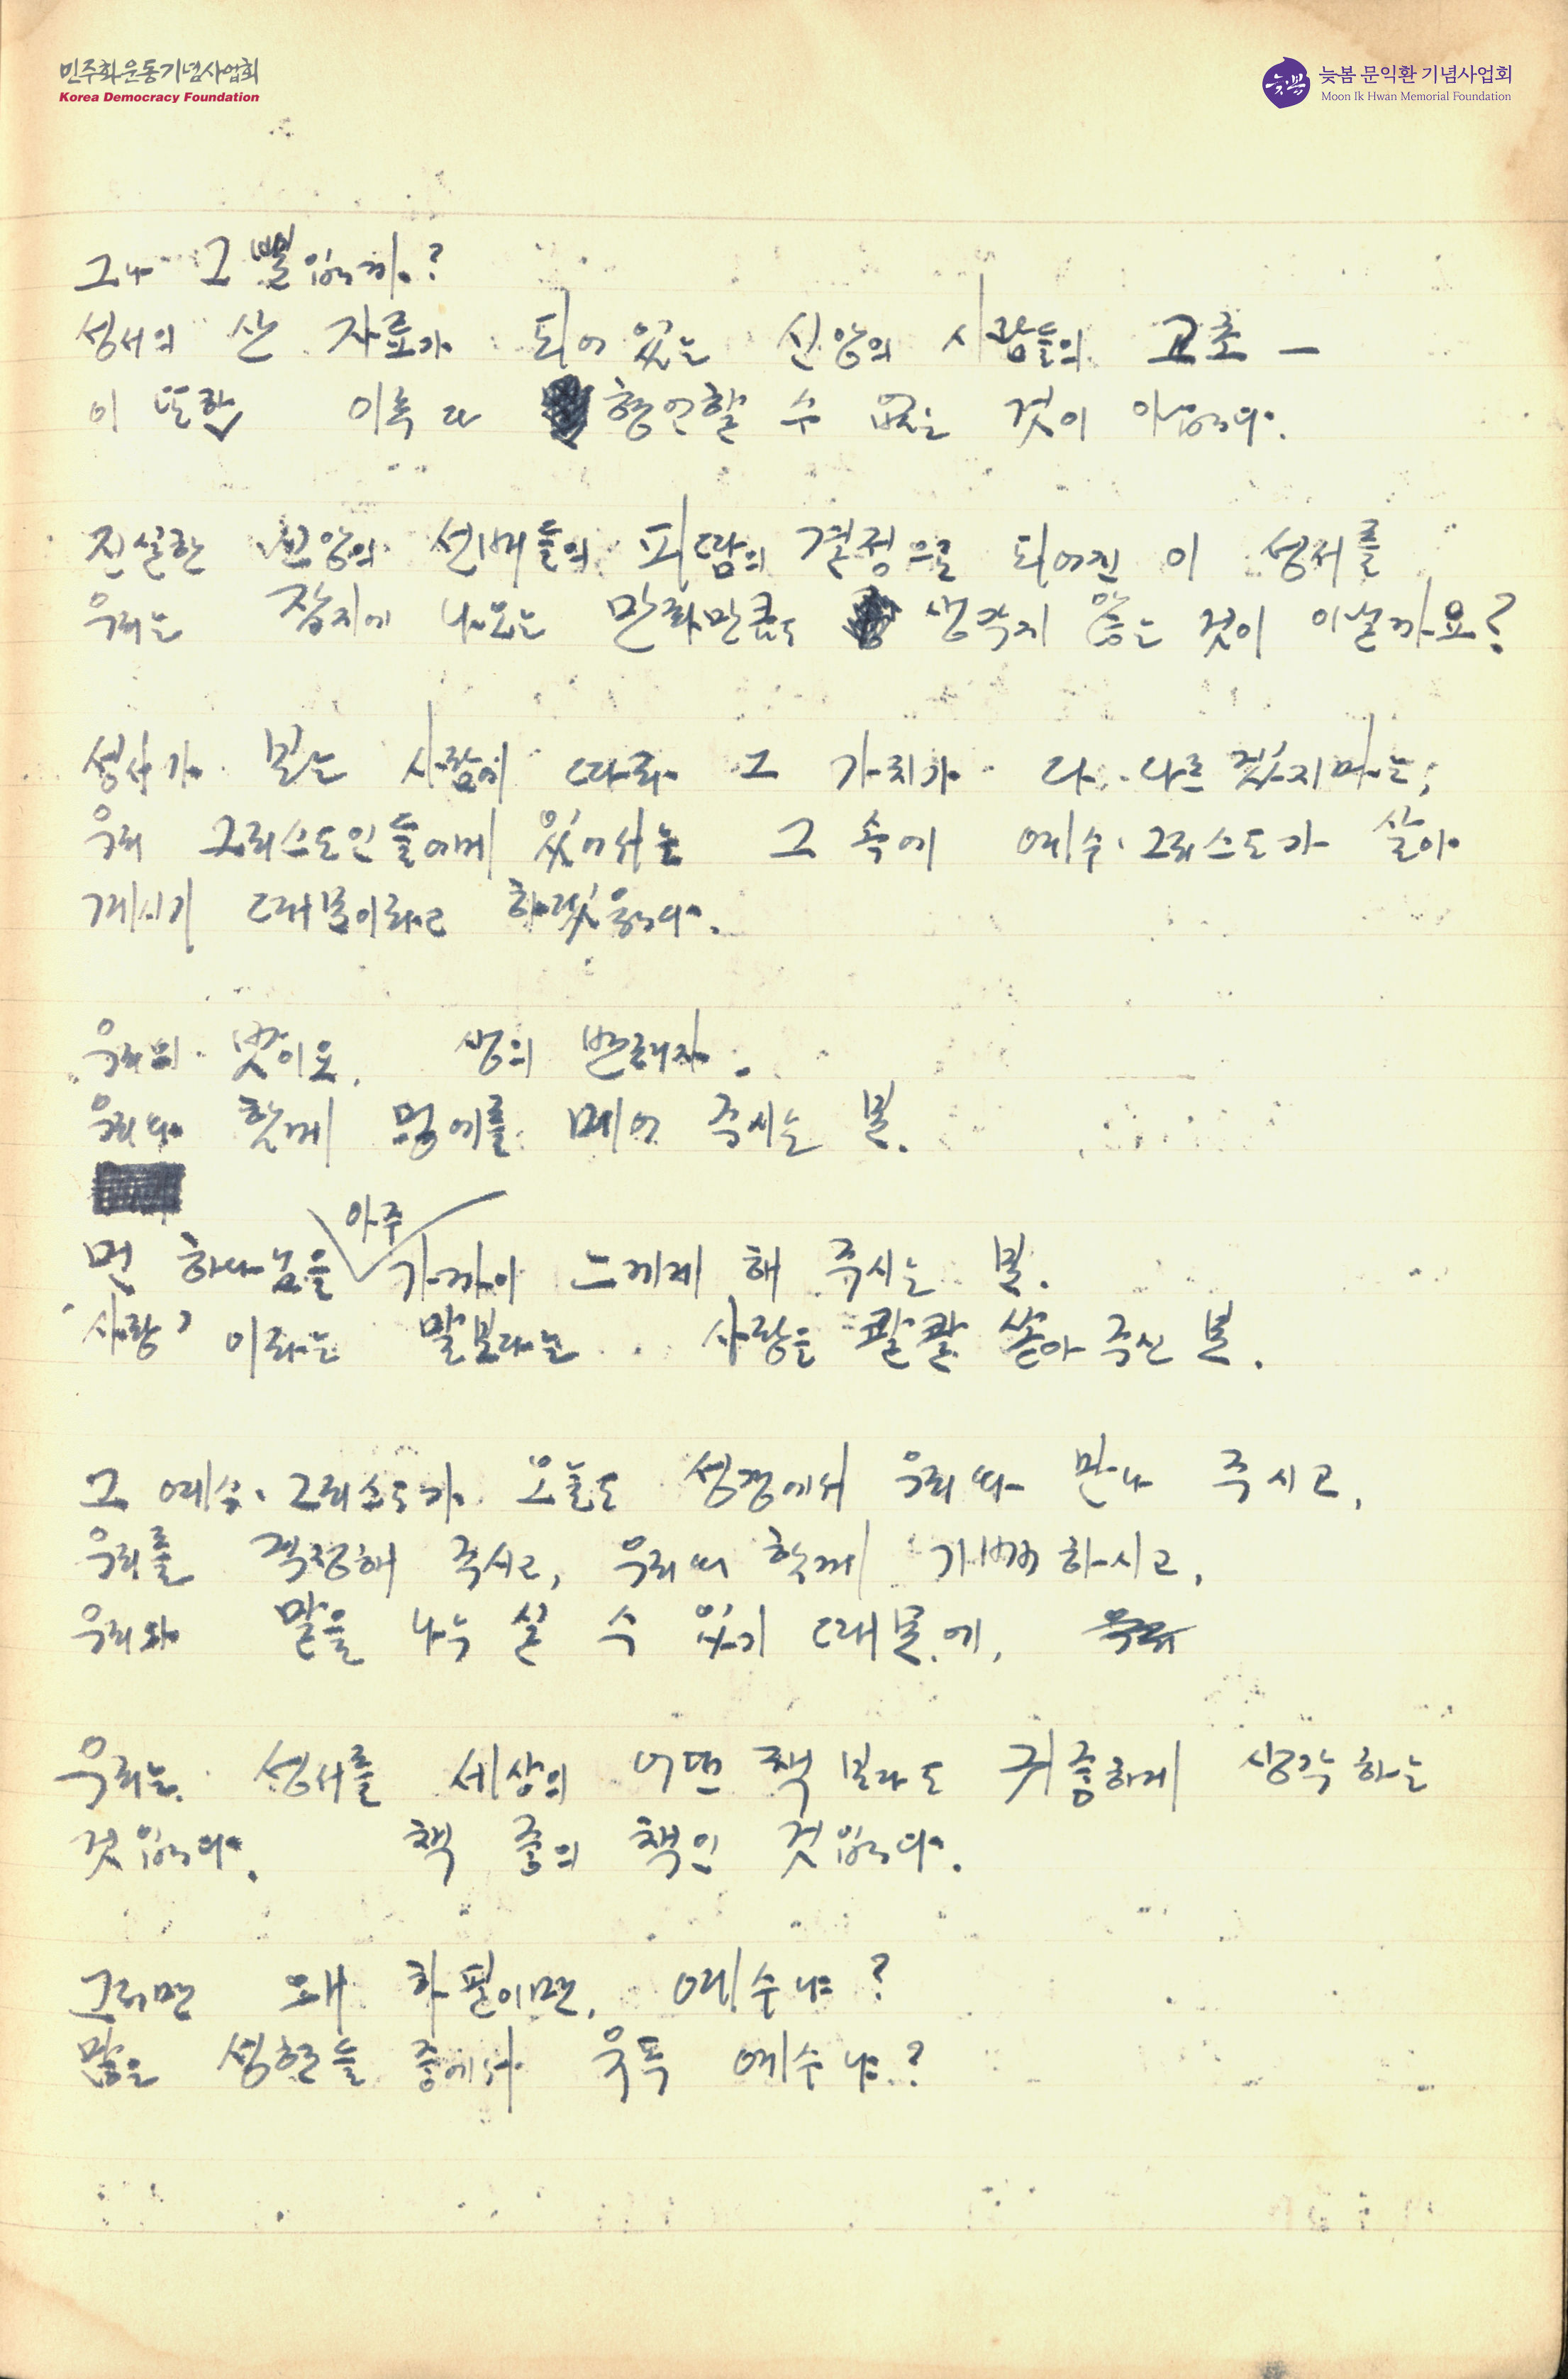 민주화운동기념사업회
Korea Democracy Foundation
늦봄 문익환 기념사업회
Moon Ik Hwan Memorial Foundation
그나 그 뿐입니까?
성서의 산 자료가 되어 있는 신앙의 사람들의 고초 —
이 또한 이루 다 형언할 수 없는 것이 아닙니다.
진실한 신앙의 선배들의 피땀의 결정으로 되어진 이 성서를
우리는 잡지에 나오는 만화만큼도 생각지 않는 것이 아닐까요?
성서가 보는 사람에 따라 그 가치가 다 다르겠지마는,
우리 그리스도인들에게 있어서는 그 속에 예수·그리스도가 살아
계시기 때문이라고 하겠읍니다.
우리의 벗이요, 생의 반려자.
우리와 함께 멍에를 메어 주시는 분.
먼 하나님을 아주 가까이 느끼게 해 주시는 분.
'사랑' 이라는 말보다는 사랑을 콸콸 쏟아 주신 분.
그 예수·그리스도가 오늘도 성경에서 우리와 만나 주시고,
우리를 걱정해 주시고, 우리와 함께 기뻐하시고,
우리와 말을 나누실 수 있기 때문에, 우리
우리는 성서를 세상의 어떤 책보다도 귀중하게 생각하는
것입니다. 책 중의 책인 것입니다.
그러면 왜 하필이면, 예수냐?
많은 성현들 중에서 우뚝 예수냐?